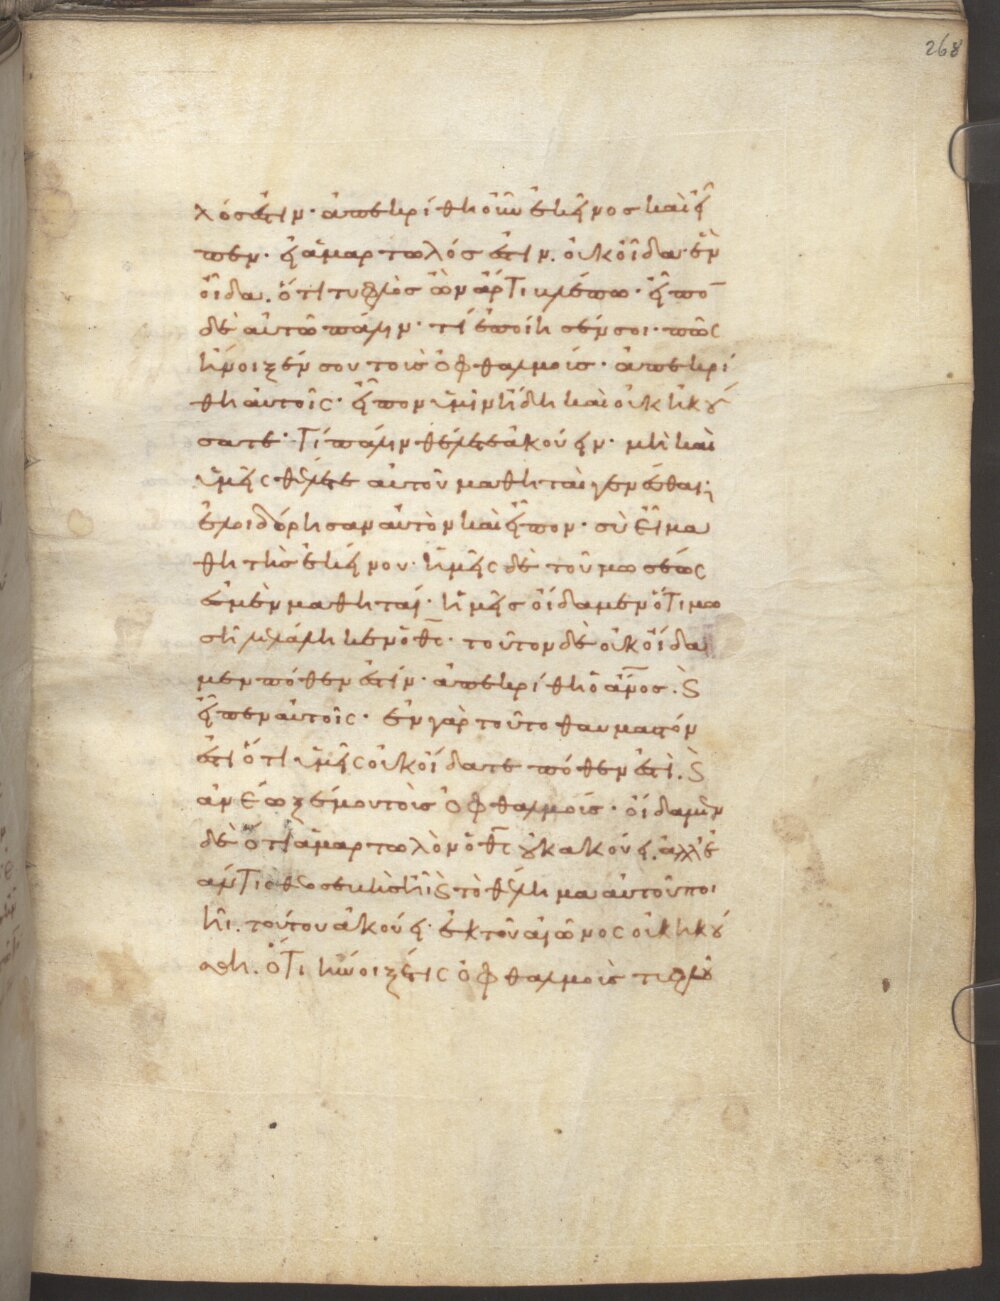 268
λός ἐστιν· ἀπεκρίθη οὖν ἐκεῖνος καὶ εἶ
πεν· εἰ ἁμαρτωλός ἐστιν. οὐκ οἶδα· ἓν
οἶδα. ὅτι τυφλὸς ὢν ἄρτι βλέπω· εἶπο̅
δὲ αὐτῶ πάλιν· τί ἐποίησέν σοι· πῶς
ἤνοιξέν σου τοὺς ὀφθαλμούς· ἀπεκρί
θη αὐτοῖς· εἶπον ὑμῖν ἤδη καὶ οὐκ ἠκού
σατε· τί πάλιν θέλετε ἀκούειν· μὴ καὶ
ὑμεῖς θέλετε αὐτοῦ μαθηταὶ γενέσθαι;
ἐλοιδόρησαν αὐτὸν καὶ εἶπον· σὺ εἶ μα
θητὴς ἐκείνου· ἡμεῖς δὲ τοῦ μωσέως
ἐσμὲν μαθηταί· ἡμεῖς οἴδαμεν ὅτι μω
σῆ λελάληκεν ὁ θς· τοῦτον δὲ οὐκ οἴδα
μεν πόθεν ἐστίν· ἀπεκρίθη ὁ ανος. ϗ
εἶπεν αὐτοῖς· ἐν γὰρ τοῦτο θαυμαστόν
ἐστι ὅτι ὑμεῖς οὐκ οἴδατε πόθεν ἐστί. ϗ
ἀνέωξέ μου τοὺς ὀφθαλμούς· οἴδαμεν
δὲ ὅτι ἁμαρτωλὸν ὁ θς οὐκ ἀκούει. ἀλλ' ἐ
άν τις θεοσεβὴς ἦ ϗ τὸ θέλημα αὐτοῦ ποι
ῆ. τούτου ἀκούει· ἐκ τοῦ αἰῶνος οὐκ ἠκού
σθη. ὅτι ἤνοιξέ τις ὀφθαλμοὺς τυφλοῦ